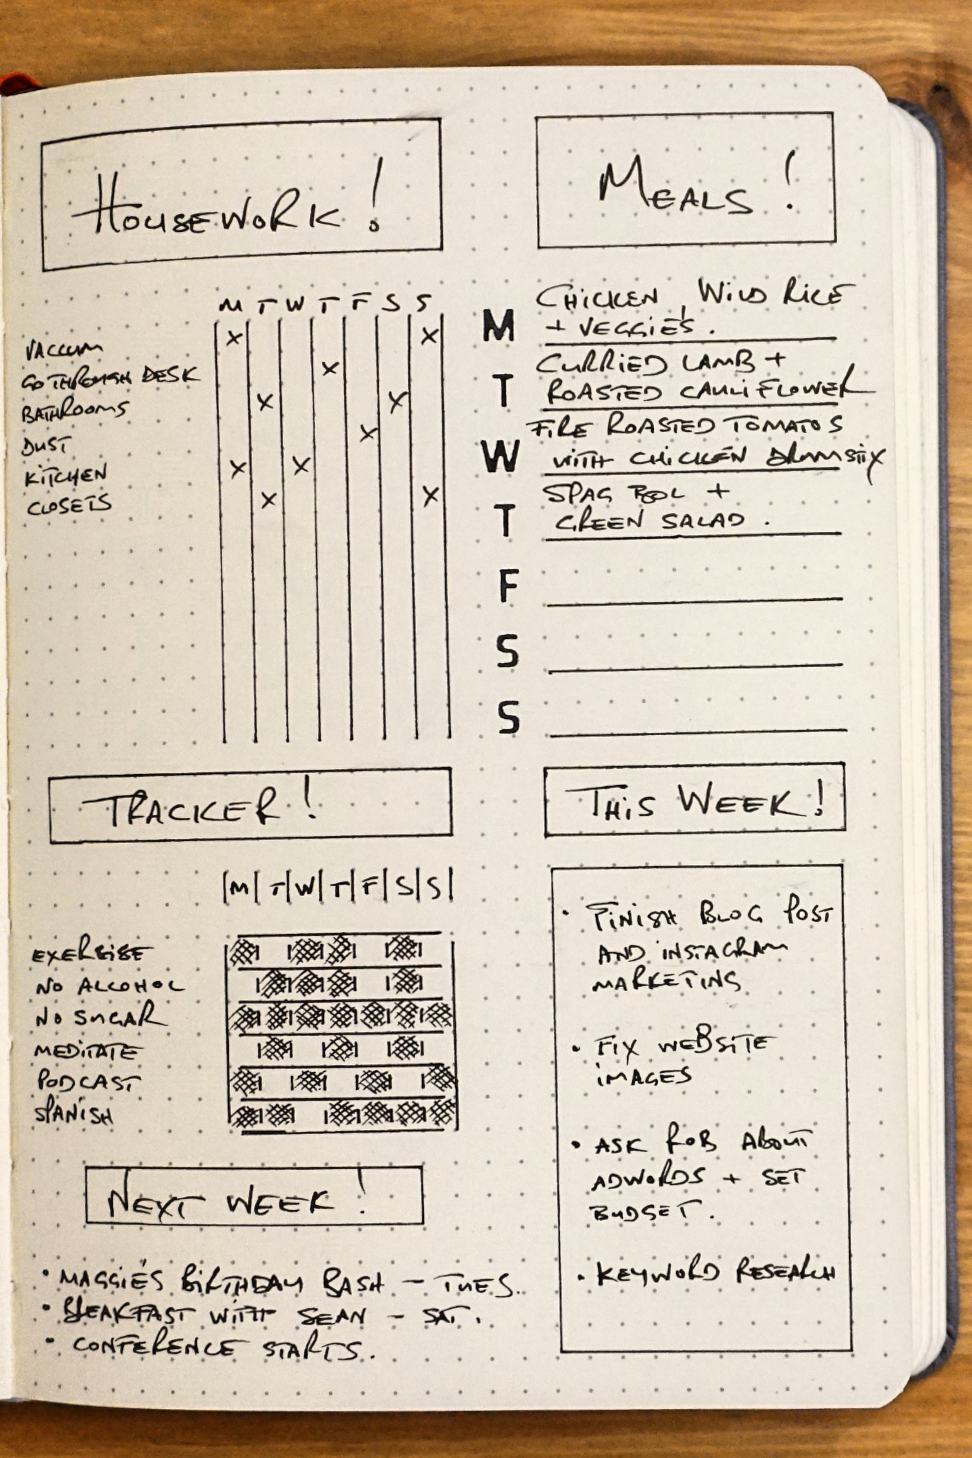 HOUSEWORK!
M T W T F S S
VACUUM x x
GO THROUGH DESK x
BATHROOMS x x
DUST x
KITCHEN x x
CLOSETS x x
MEALS!
M CHICKEN, WILD RICE
+ VEGGIES.
T CURRIED LAMB +
ROASTED CAULIFLOWER
W FIRE ROASTED TOMATOS
WITH CHICKEN DRUMSTIX
T SPAG BOL +
GREEN SALAD.
F
S
S
TRACKER!
|M|T|W|T|F|S|S|
EXERCISE
NO ALCOHOL
NO SUGAR
MEDITATE
PODCAST
SPANISH
NEXT WEEK!
• MAGGIE'S BIRTHDAY BASH – TUES.
• BREAKFAST WITH SEAN – SAT.
• CONFERENCE STARTS.
THIS WEEK!
• FINISH BLOG POST
AND INSTAGRAM
MARKETING
• FIX WEBSITE
IMAGES
• ASK ROB ABOUT
ADWORDS + SET
BUDGET.
• KEYWORD RESEARCH